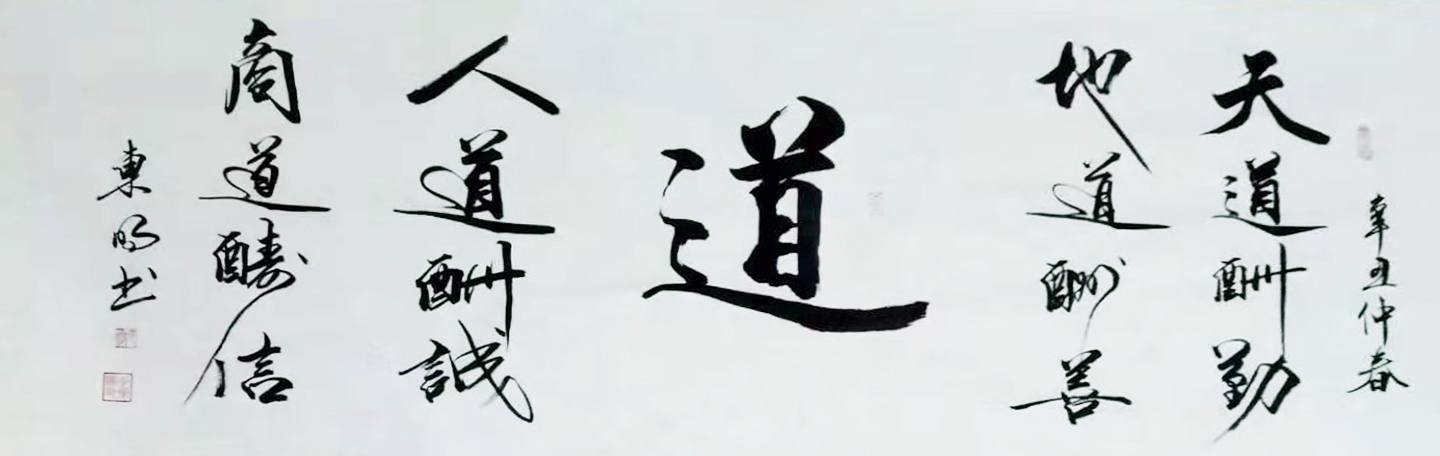 辛丑仲春
天道酬勤
地道酬善
道
人道酬誠
商道酬信
東明书